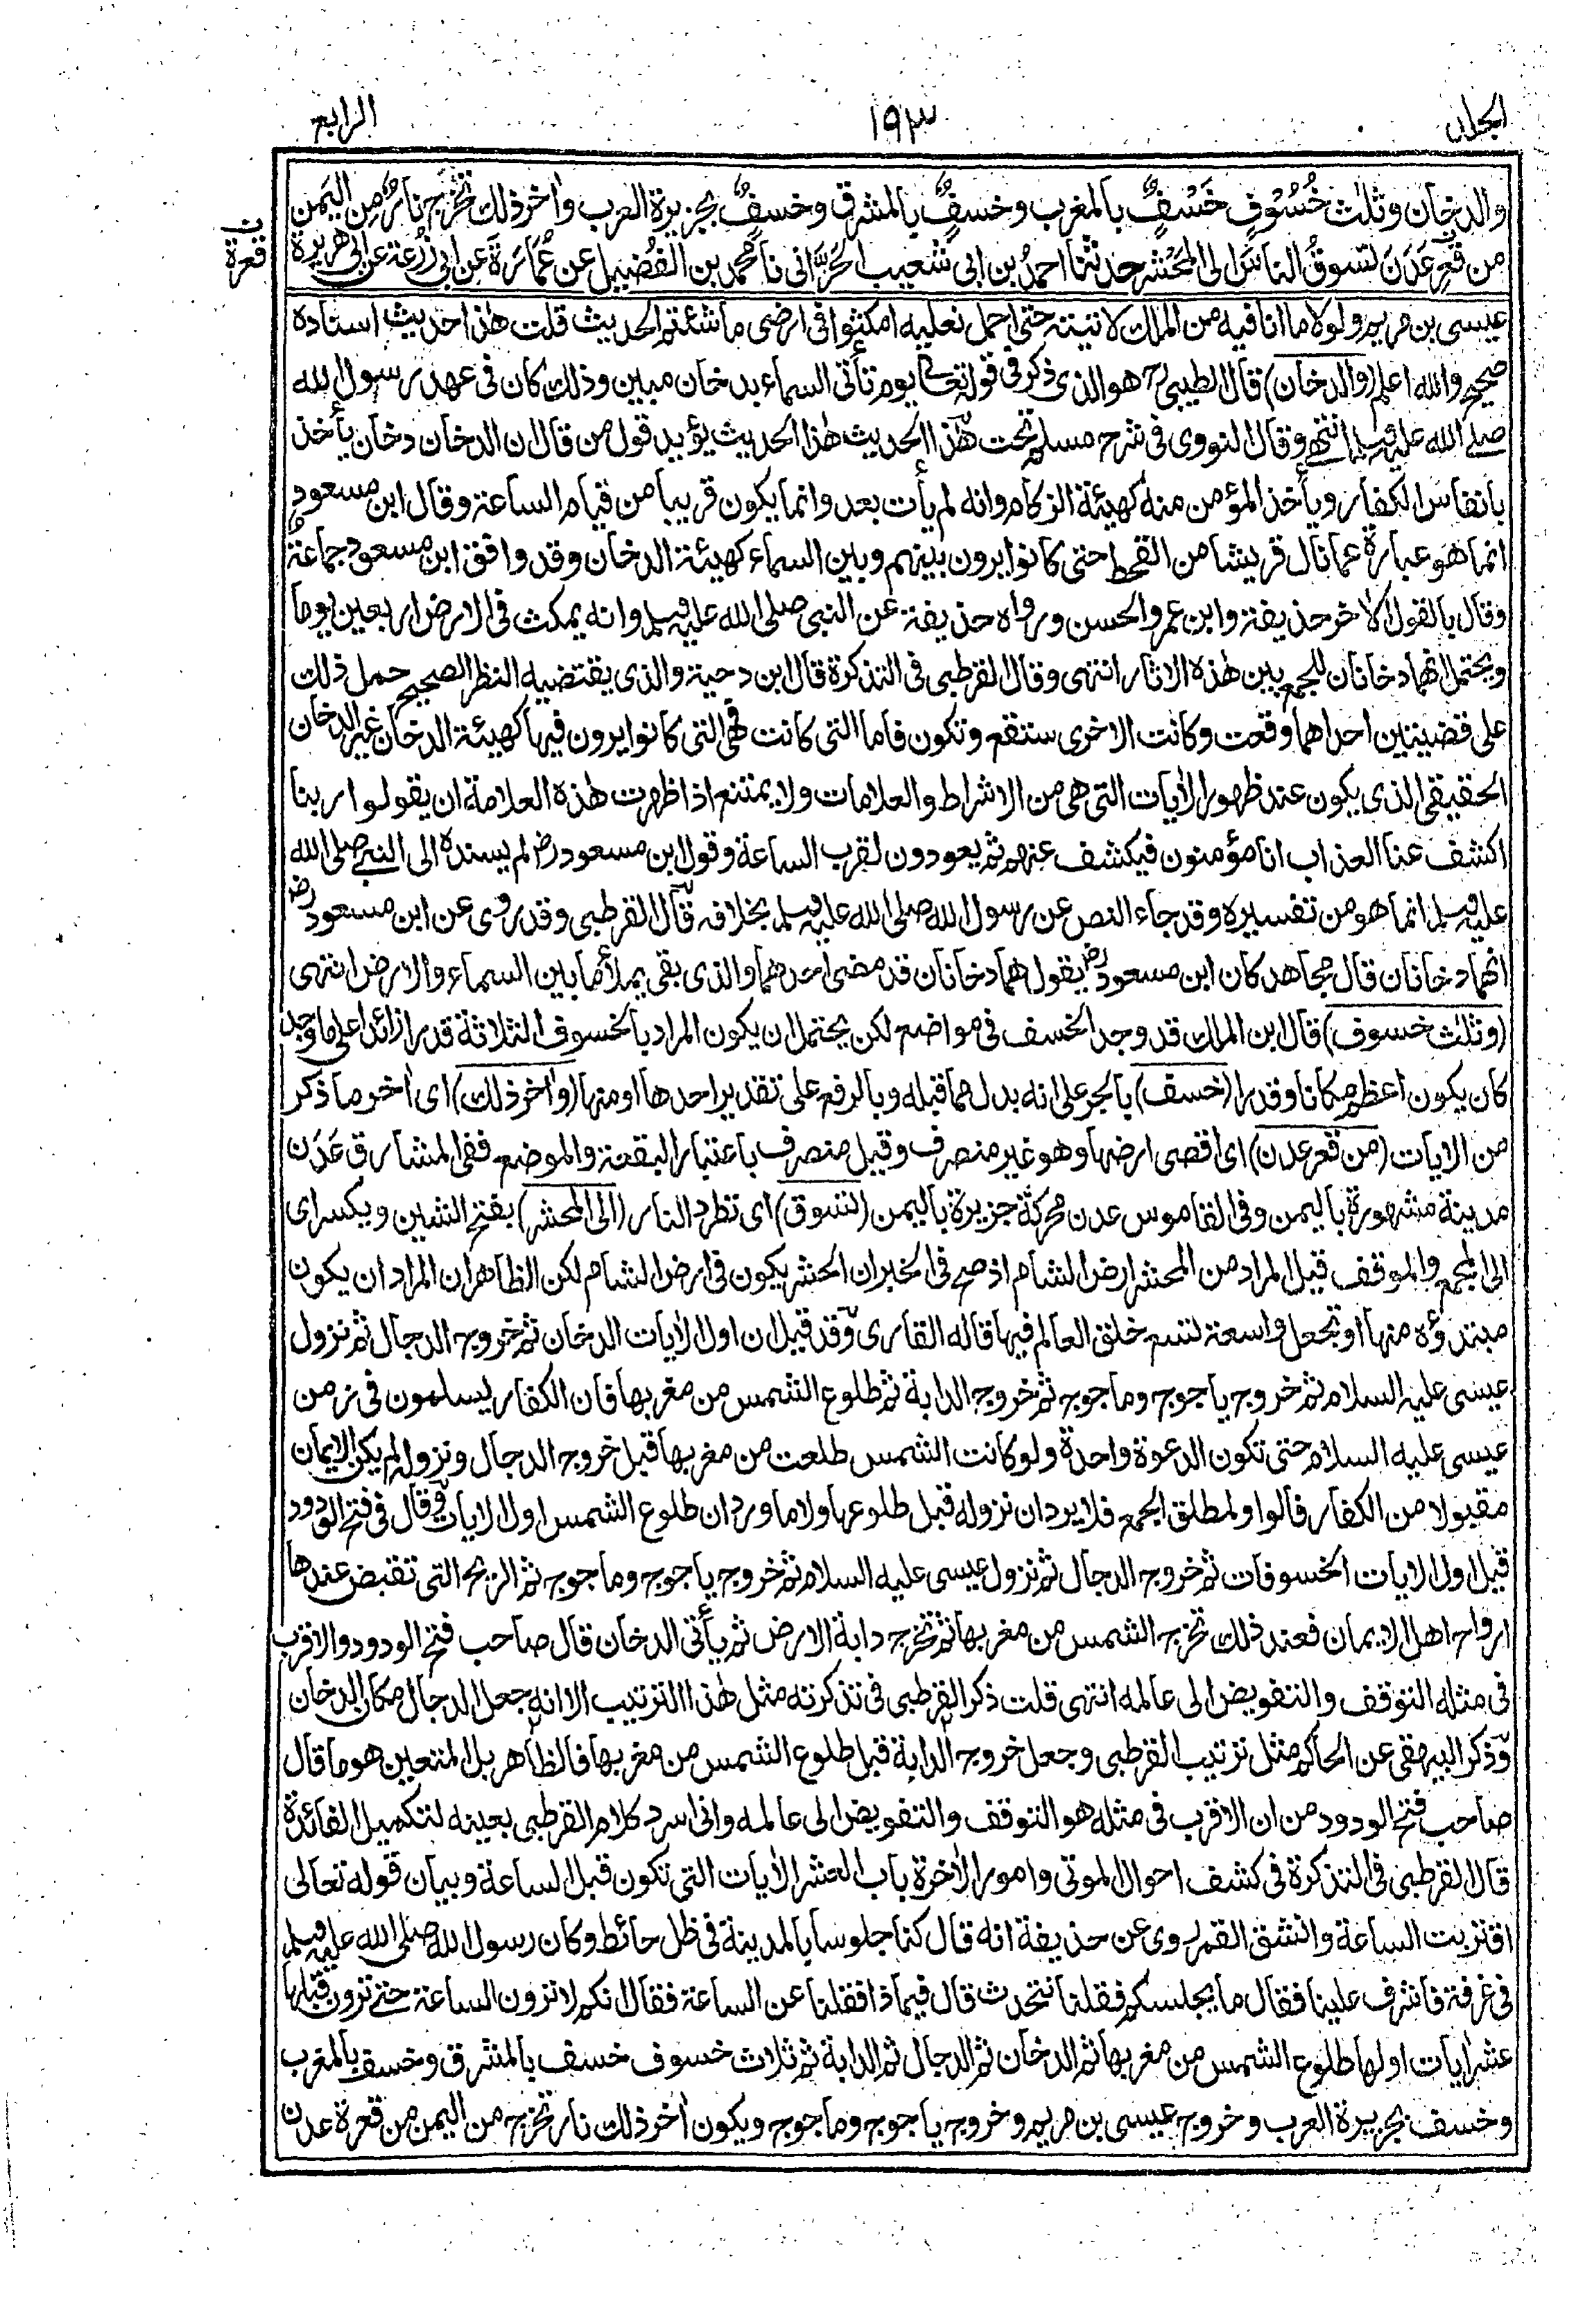 الجلد ١٩٣ الرابع
والدخان وثلث خُسُوفٍ خَسْفٌ بالمغرب وخسفٌ بالمشرق وخسفٌ بجزيرة العرب واٰخر ذلك تَخْرُج نارٌ من اليَمن
من قَعرِ عَدَنَ تسوقُ الناسَ الى المَحْشر حدثنا احمدُ بن ابى شعيب الحَرّانى نا محمد بن الفُضَيل عن عُمَارَةَ عن ابى زُرْعة عن ابى هريرة
ن قعرة
عيسى بن مريم ولولا ما انا فيه من الملك لاتيته حتى احمل نعليه امكثوا فى ارضى ما شئتم الحديث قلت هذا حديث اسناده
صحيح والله اعلم (والدخان) قال الطيبى رح هو الذى ذكر فى قوله تعالى يوم تأتى السماء بدخان مبين وذلك كان فى عهد رسول الله
صلى الله عليه وسلم انتهى وقال النووى فى شرح مسلم تحت هذا الحديث هذا الحديث يؤيد قول من قال ان الدخان دخان يأخذ
بانفاس الكفار ويأخذ المؤمن منه كهيئة الزكام وانه لم يأت بعد وانما يكون قريبا من قيام الساعة وقال ابن مسعود
انما هو عبارة عما نال قريشا من القحط حتى كانوا يرون بينهم وبين السماء كهيئة الدخان وقد وافق ابن مسعود جماعة
وقال بالقول الاٰخر حذيفة وابن عمر والحسن ورواه حذيفة عن النبى صلى الله عليه وسلم وانه يمكث فى الارض اربعين يوما
ويحتمل انهما دخانان للجمع بين هذه الاثار انتهى وقال القرطبى فى التذكرة قال ابن دحية والذى يقتضيه النظر الصحيح حمل ذلك
على قضيتين احداهما وقعت وكانت الاخرى ستقع وتكون فاما التى كانت فهى التى كانوا يرون فيها كهيئة الدخان غير الدخان
الحقيقى الذى يكون عند ظهور الاٰيات التى هى من الاشراط والعلامات ولا يمتنع اذا ظهرت هذه العلامة ان يقولوا ربنا
اكشف عنا العذاب انا مؤمنون فيكشف عنهم ثم يعودون لقرب الساعة وقول ابن مسعود رض لم يسنده الى النبى صلى الله
عليه وسلم انما هو من تفسيره وقد جاء النص عن رسول الله صلى الله عليه وسلم بخلافه قال القرطبى وقد روى عن ابن مسعود رض
انهما دخانان قال مجاهد كان ابن مسعود رض يقول هما دخانان قد مضى احدهما والذى بقى يملأ ما بين السماء والارض انتهى
(وثلث خسوف) قال ابن الملك قد وجد الخسف فى مواضع لكن يحتمل ان يكون المراد بالخسوف الثلاثة قدرا زائدا على ما وجد
كان يكون اعظم مكانا وقدرا (خسف) بالجر على انه بدل مما قبله وبالرفع على تقدير احدها او منها (واٰخر ذلك) اى اٰخر ما ذكر
من الايات (من قعر عدن) اى اقصى ارضها وهو غير منصرف وقيل منصرف باعتبار البقعة والموضع ففى المشارق عَدَن
مدينة مشهورة باليمن وفى القاموس عدن محركة جزيرة باليمن (تسوق) اى تطرد النار (الى المحشر) بفتح الشين ويكسر اى
الى المجمع والموقف قيل المراد من المحشر ارض الشام اذ صح فى الخبر ان الحشر يكون فى ارض الشام لكن الظاهر ان المراد ان يكون
مبتدؤه منها او تجعل واسعة لتسع خلق العالم فيها قاله القارى وقد قيل ان اول الاٰيات الدخان ثم خروج الدجال ثم نزول
عيسى عليه السلام ثم خروج ياجوج وماجوج ثم خروج الدابة ثم طلوع الشمس من مغربها فان الكفار يسلمون فى زمن
عيسى عليه السلام حتى تكون الدعوة واحدة ولو كانت الشمس طلعت من مغربها قبل خروج الدجال ونزوله لم يكن الايمان
مقبولا من الكفار فالواو لمطلق الجمع فلا يرد ان نزوله قبل طلوعها ولا ما ورد ان طلوع الشمس اول الاٰيات وقال فى فتح الودود
قيل اول الايات الخسوفات ثم خروج الدجال ثم نزول عيسى عليه السلام ثم خروج ياجوج وماجوج ثم الريح التى تقبض عندها
ارواح اهل الايمان فعند ذلك تخرج الشمس من مغربها ثم تخرج دابة الارض ثم يأتى الدخان قال صاحب فتح الودود والاقرب
فى مثله التوقف والتفويض الى عالمه انتهى قلت ذكر القرطبى فى تذكرته مثل هذا الترتيب الا انه جعل الدجال مكان الدخان
وذكر البيهقى عن الحاكم مثل ترتيب القرطبى وجعل خروج الدابة قبل طلوع الشمس من مغربها فالظاهر بل المتعين هو ما قال
صاحب فتح الودود من ان الاقرب فى مثله هو التوقف والتفويض الى عالمه وانى اسرد كلام القرطبى بعينه لتكميل الفائدة
قال القرطبى فى التذكرة فى كشف احوال الموتى وامور الاٰخرة باب العشر الاٰيات التى تكون قبل الساعة وبيان قوله تعالى
اقتربت الساعة وانشق القمر روى عن حذيفة انه قال كنا جلوسا بالمدينة فى ظل حائط وكان رسول الله صلى الله عليه وسلم
فى غرفة فاشرف علينا فقال ما يجلسكم فقلنا نتحدث قال فيما ذا فقلنا عن الساعة فقال انكم لا ترون الساعة حتى ترون قبلها
عشر اٰيات اولها طلوع الشمس من مغربها ثم الدخان ثم الدجال ثم الدابة ثم ثلاث خسوف خسف بالمشرق وخسف بالمغرب
وخسف بجزيرة العرب وخروج عيسى بن مريم وخروج ياجوج وماجوج ويكون اٰخر ذلك نار تخرج من اليمن من قعرة عدن